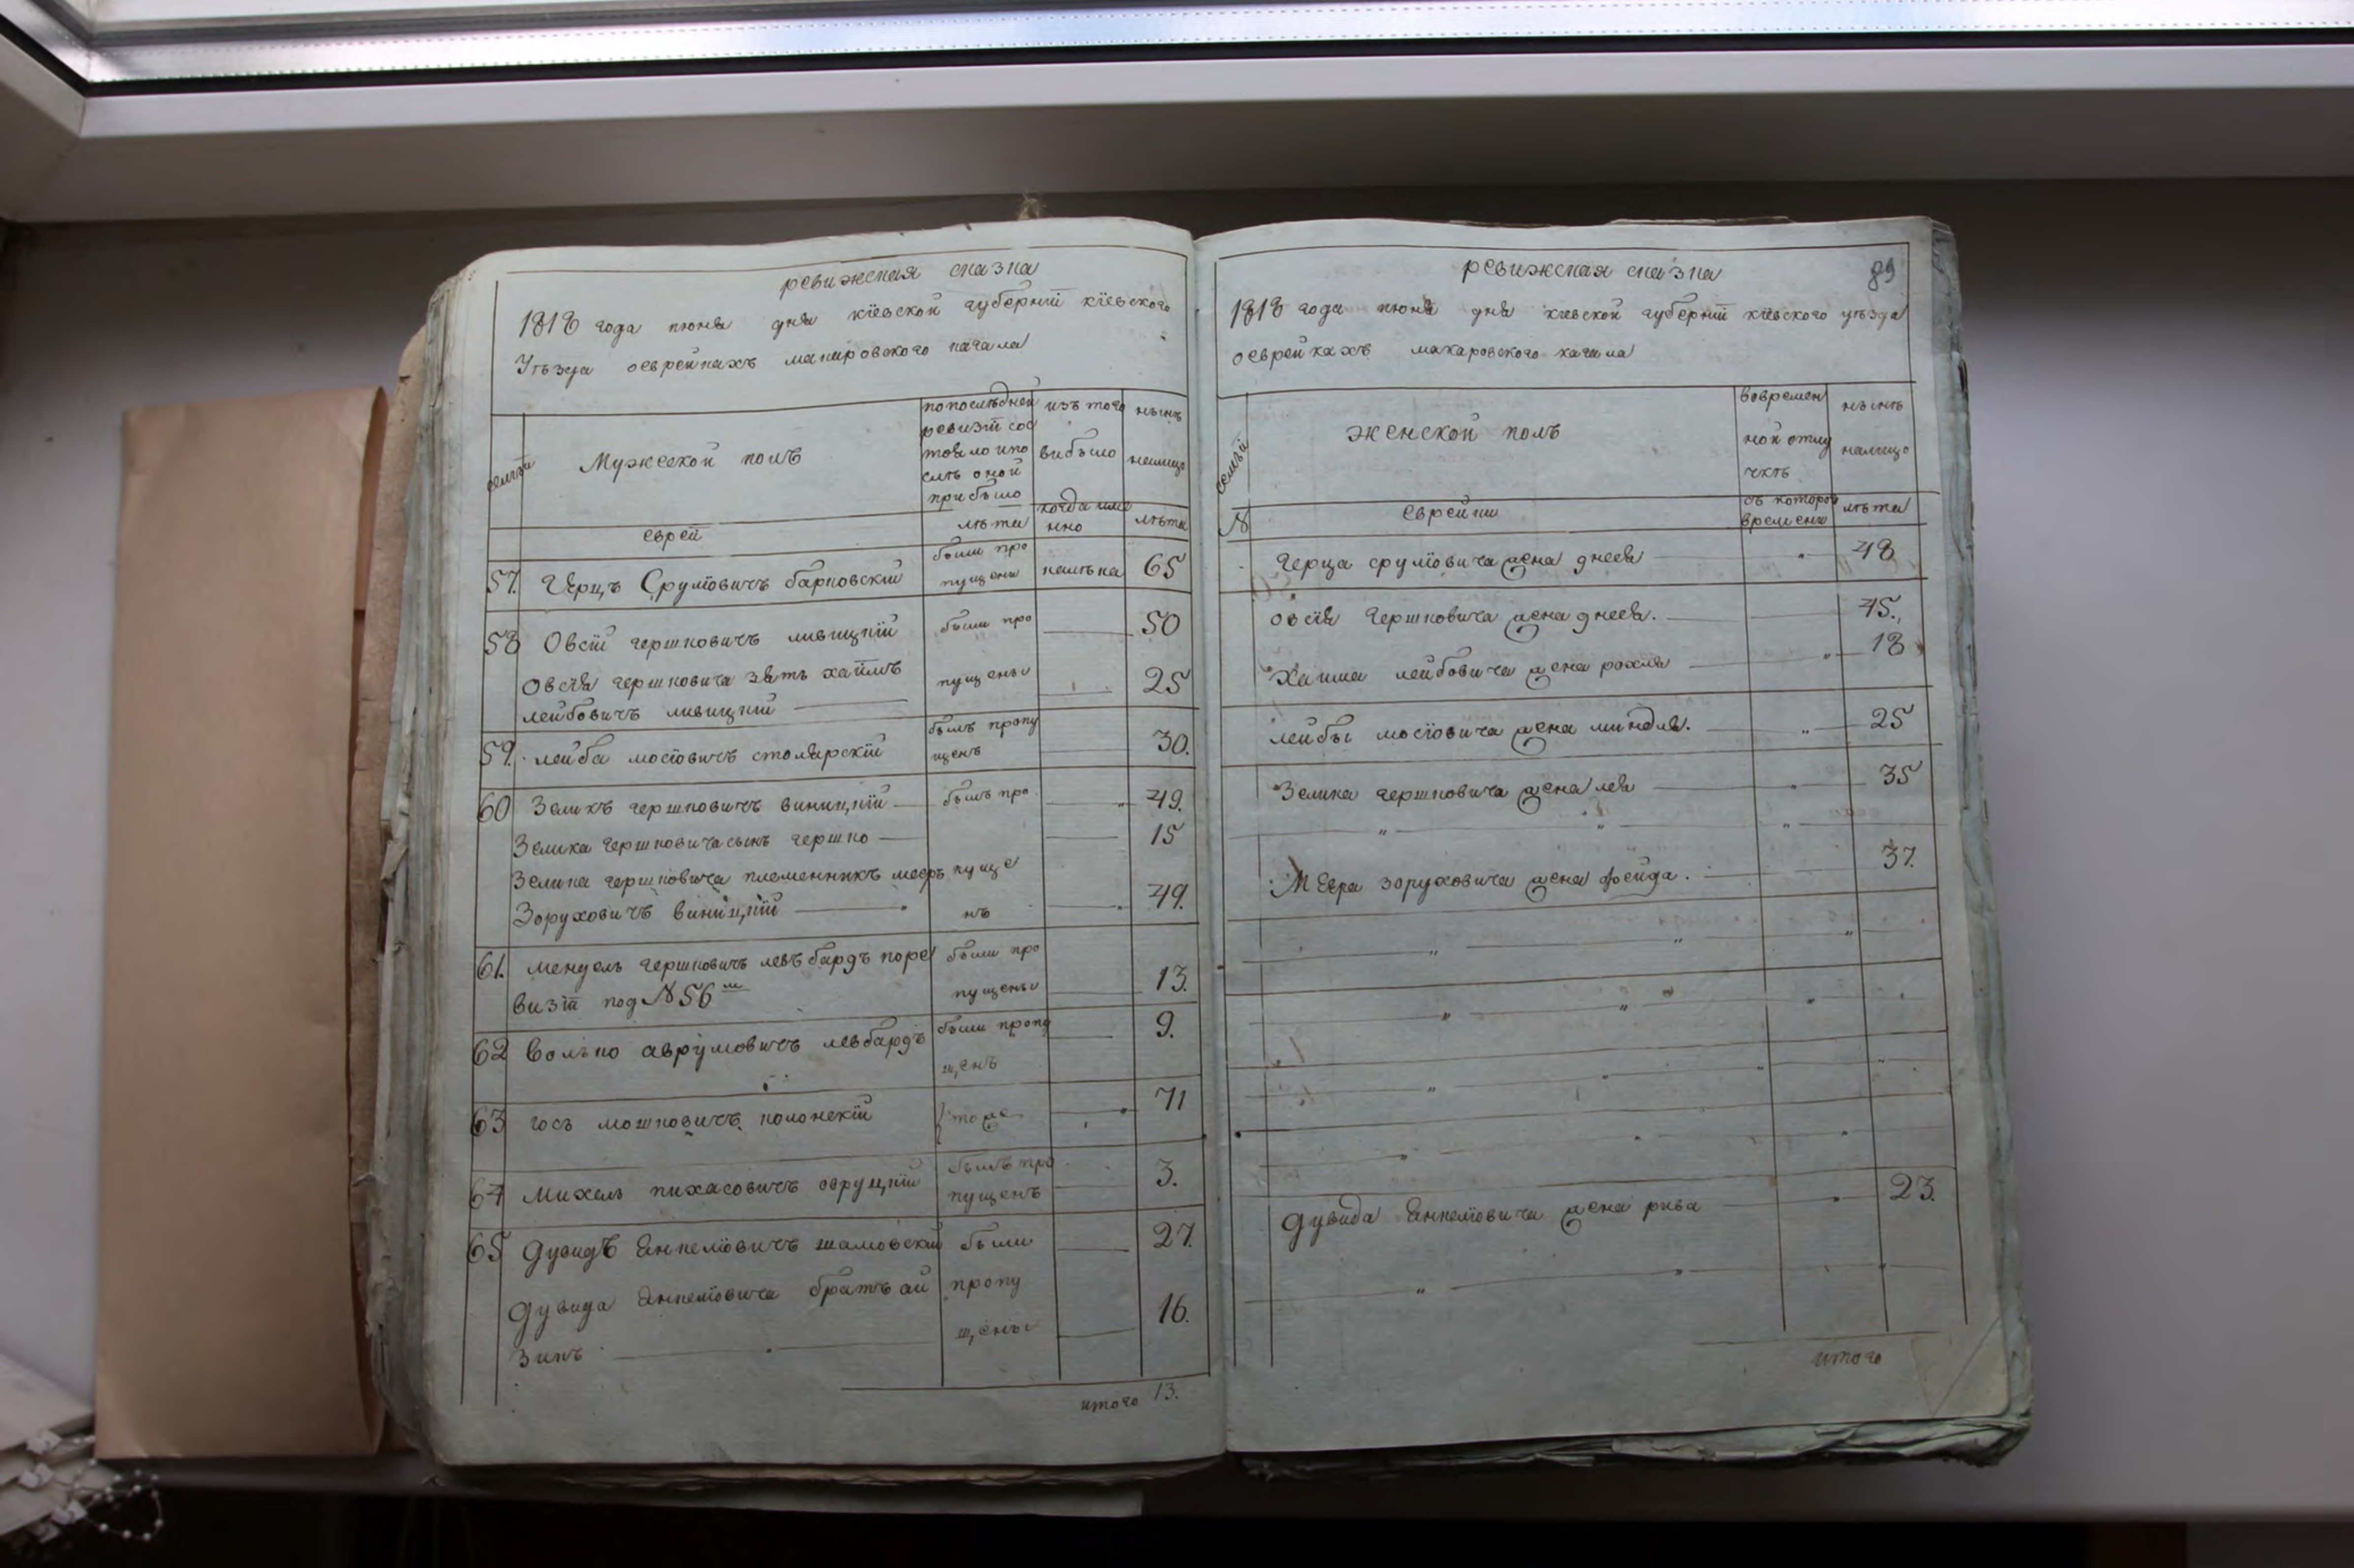 ревижская сказка
1818 года июня дня кіевской губерніи кіевского
Уѣзда оеврейкахъ макаровского кагала
семьи
Мужеской полъ
попослѣдней
ревизіи сос
тояло ипо
слѣ оной
прибыло
изъ того
выбыло
нынѣ
налицо
еврей
лѣта
когда име
нно
лѣта
57. Герцъ Срумовичъ барповскій были про 65
пущены
58 Овсій гершковичъ ливицкій были про 50
Овсѣя гершковича зять хаимъ пущены 25
лейбовичъ ливицкій
59. лейба мосіовичъ столярскій былъ пропу 30.
щенъ
60 Зеликъ гершковичъ виницкій былъ про 49.
Зелика гершковича сынъ гершко 15
Зелика гершковича племенникъ мееръ пуще
Зоруховичъ виницкій нъ 49.
61. мендель гершковичъ левъбардъ поре были про
визіи под №56 м пущены 13.
62 Волько аврумовичъ левбардъ были пропу 9.
щенъ
63 гось мошковичъ полонскій тоже 71
64 Михель пихасовичъ овруцкій былъ про 3.
пущенъ
65 Дувидъ Янкеліовичъ шамовскій были 27.
Дувида Янкеліовича братъ ай пропу
зикъ щены 16.
итого 13.
ревижская сказка 89
1818 года июня дня кіевской губерніи кіевского уѣзда
оеврейкахъ макаровского кагала
семьи
женской полъ
вовремен
ной отлу
чкѣ
нынѣ
налицо
№
еврейки
съ которого
времени
лѣта
Герца срумовича жена днея 48
овсѣя Гершковича жена днея. 45.
Хаима лейбовича жена рохля 18
лейбы мосіовича жена миндля. 25
Зелика гершковича жена лея 35
Меера зоруховича жена фейда. 37.
Дувида Янкеліовича жена рива 23.
итого